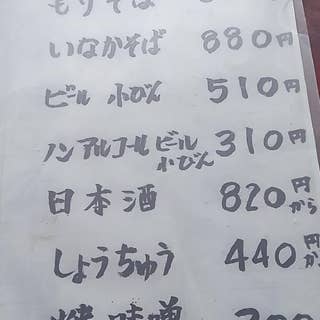 もりそば
いなかそば 880円
ビール 小びん 510円
ノンアルコールビール小びん 310円
日本酒 820円から
しょうちゅう 440円から
焼味噌